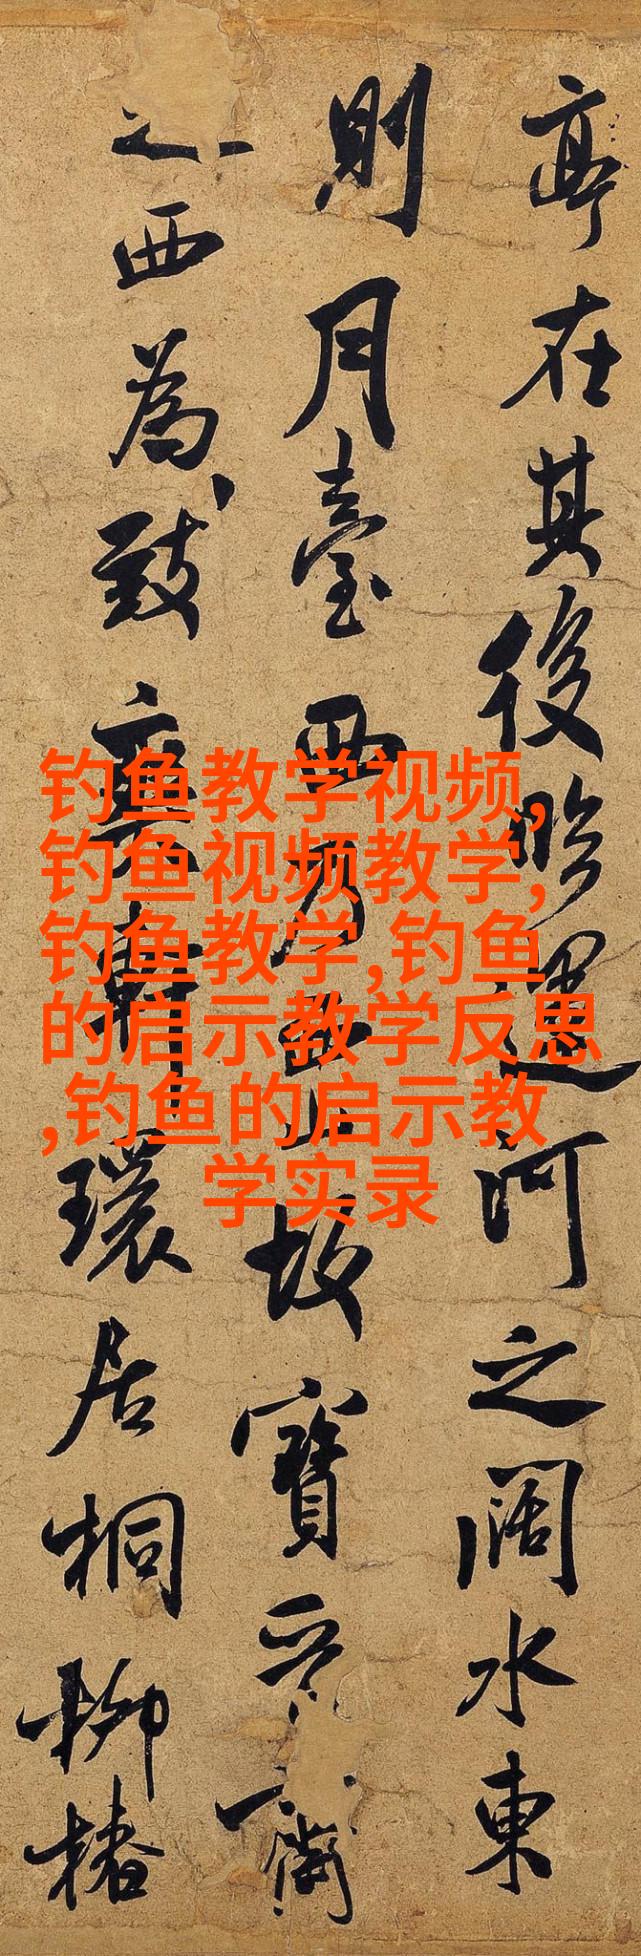 亭在其後河之闊水東
則月臺西乃西上故寶晉齋
之西為致爽軒環居桐柳椿
钓鱼教学视频,
钓鱼视频教学,
钓鱼教学,钓鱼
的启示教学反思
,钓鱼的启示教
学实录